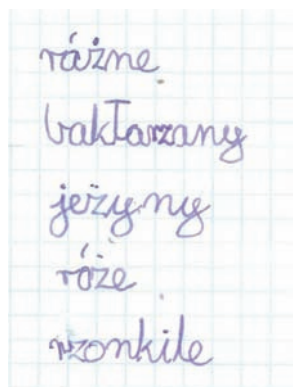 różne
bakłarzany
jeżyny
róże
rzonkile